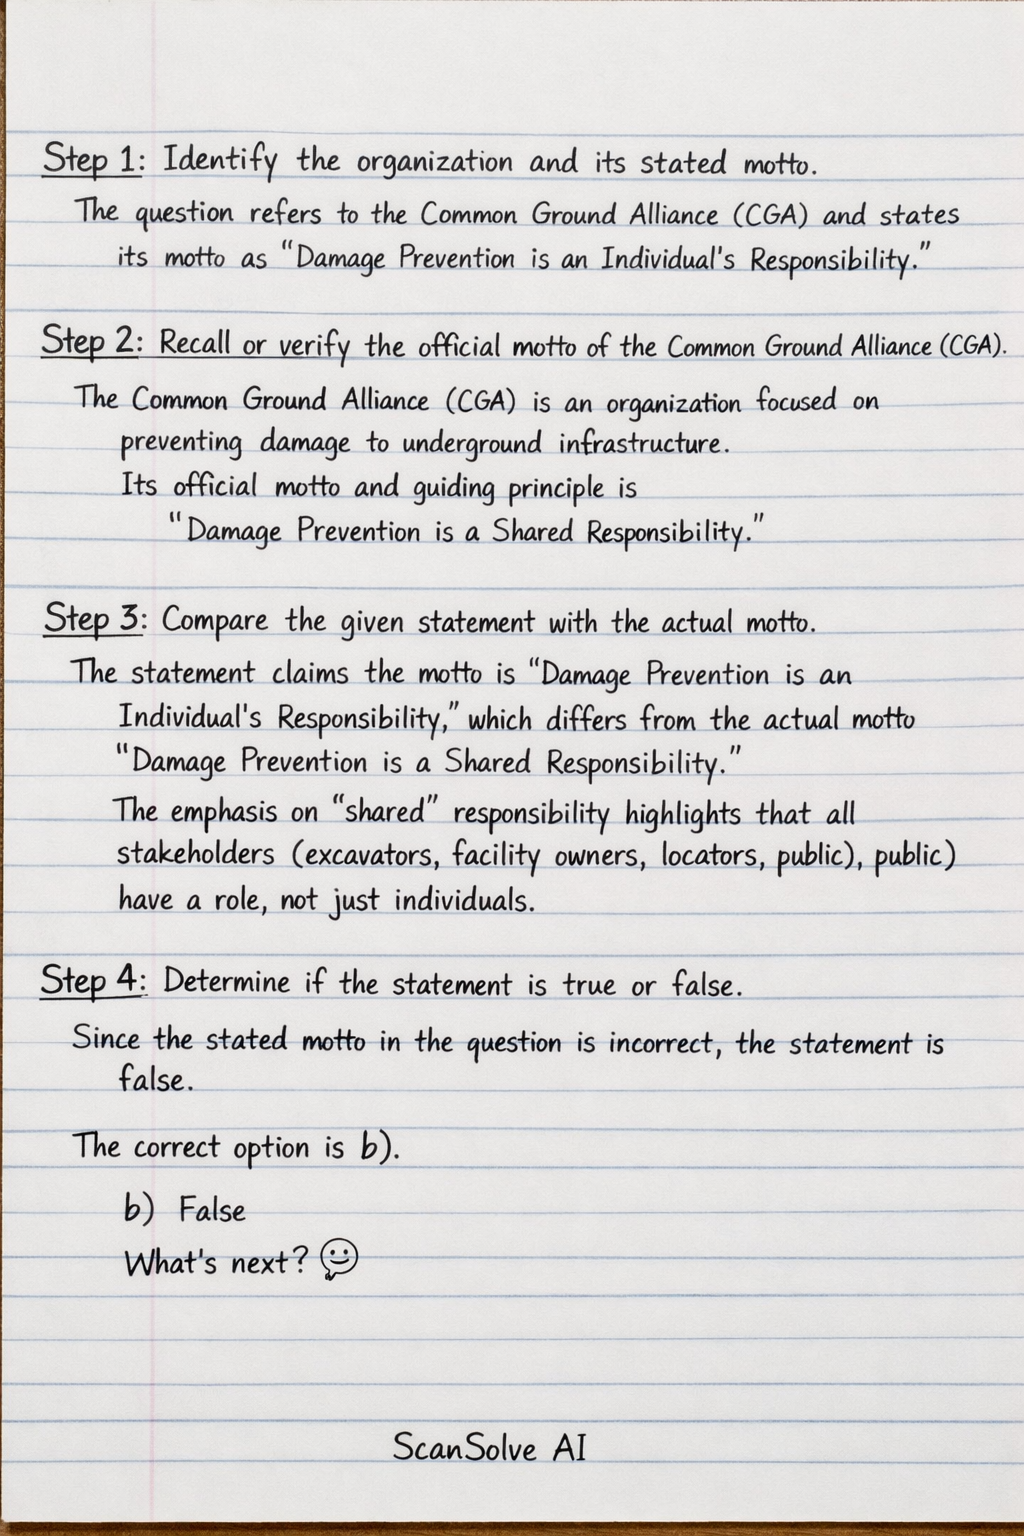 Step 1: Identify the organization and its stated motto.
The question refers to the Common Ground Alliance (CGA) and states
its motto as "Damage Prevention is an Individual's Responsibility."
Step 2: Recall or verify the official motto of the Common Ground Alliance (CGA).
The Common Ground Alliance (CGA) is an organization focused on
preventing damage to underground infrastructure.
Its official motto and guiding principle is
"Damage Prevention is a Shared Responsibility."
Step 3: Compare the given statement with the actual motto.
The statement claims the motto is "Damage Prevention is an
Individual's Responsibility," which differs from the actual motto
"Damage Prevention is a Shared Responsibility."
The emphasis on "shared" responsibility highlights that all
stakeholders (excavators, facility owners, locators, public), public)
have a role, not just individuals.
Step 4: Determine if the statement is true or false.
Since the stated motto in the question is incorrect, the statement is
false.
The correct option is b).
b) False
What's next?
ScanSolve AI